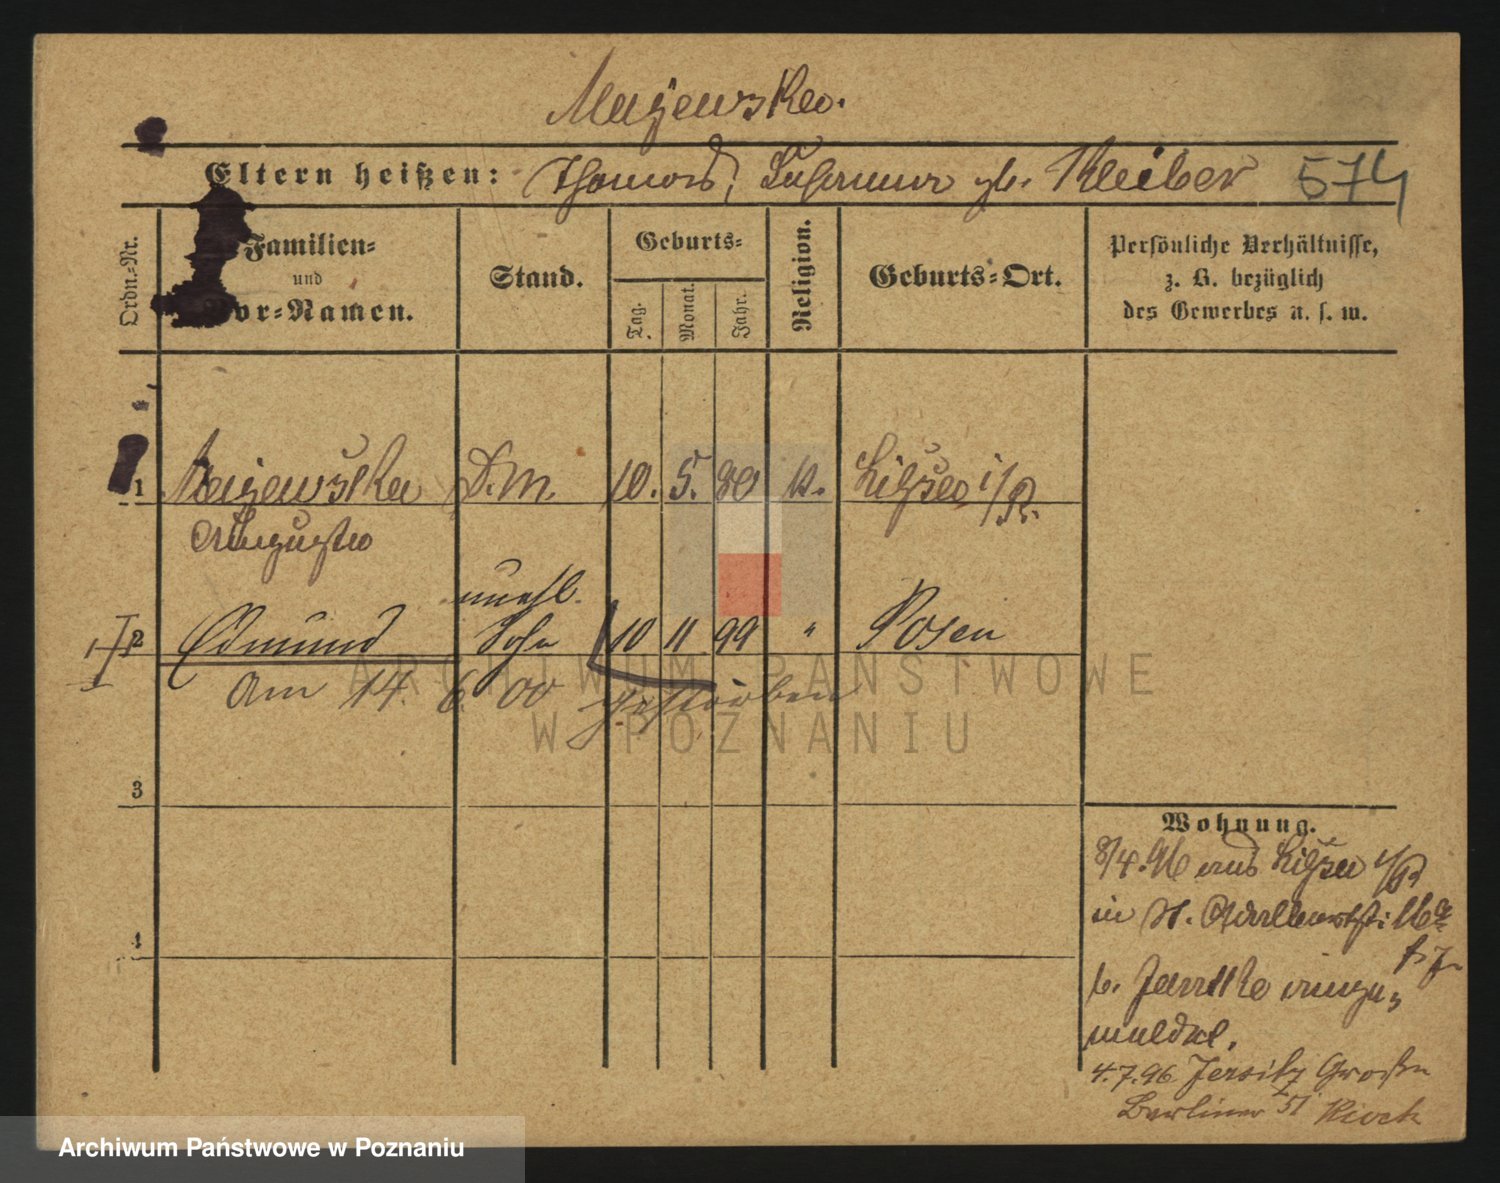 Majewska.
Eltern heißen: Thomas, Susanna gb. Kleiber 574
Ordn.-Nr.
Familien-
und
Vor-Namen.
Stand.
Geburts-
Tag.
Monat.
Jahr.
Religion.
Geburts-Ort.
Persönliche Verhältnisse,
z. B. bezüglich
des Gewerbes u. s. w.
1 Majewska D.M. 10. 5. 80 k. i/P.
Augusta
unehl.
2 Edmund Sohn 10 11 99 " Posen
Am 14. 6. 00 gestorben
3
4
Wohnung.
8/4.96 aus i/P
in St. Adalbertstr. 16a
b. angе-
meldet.
4.7.96 Jersitz Große
Berliner 51
ARCHIWUM PAŃSTWOWE
W POZNANIU
Archiwum Państwowe w Poznaniu